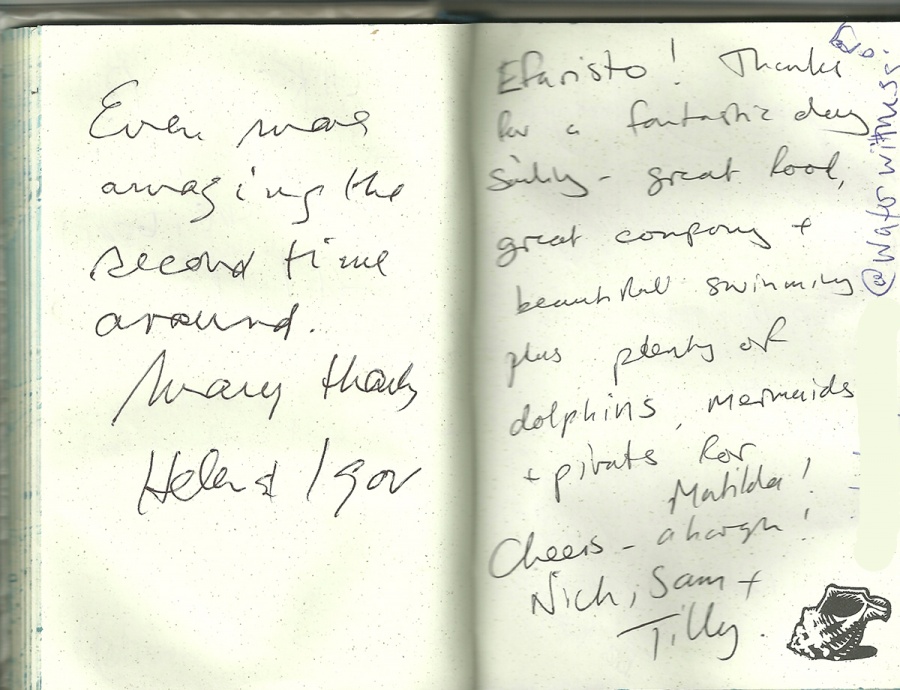 Even more
amazing the
second time
around.
Many thanks
Helen & Igor
Efaristo! Thanks
for a fantastic day
sailing - great food,
great company +
beautiful swimming
plus plenty of
dolphins, mermaids
+ pirates for
Matilda!
Cheers - ahargh!
Nick, Sam +
Tilly.
@waterwitness